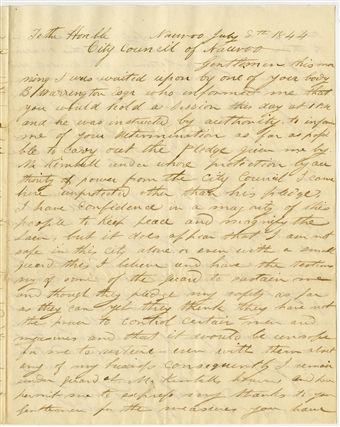 To the Honble Nauvoo July 8th 1844
City Council of Nauvoo
Gentlemen this mor
ning I was waited upon by one of your body
B Warrington Esqr who informed me that
you would hold a session this day at 1 PM
and he was instructed by authority to inform
me of your determination as far as possi
ble to carry out the Pledge given me by
Mr Kimball under whose protection by au
thority of power from the City Council I came
here unprotected other than his pledge,
I have confidence in a majority of this
people to keep peace and magnify the
Law, but it does appear that I am not
safe in this city alone or even with a small
guard this I believe and have the testimo
ny of some of the guard to sustain me
and though they pledge my safety as far
as they can yet they think they have not
the power to control certain men and
measures and that it would be unsafe
for me to venture even with them about
any of my business consequently I remain
under guard at Mr Kimballs house and here
permit me to express my thanks to you
gentlemen for the measures you have